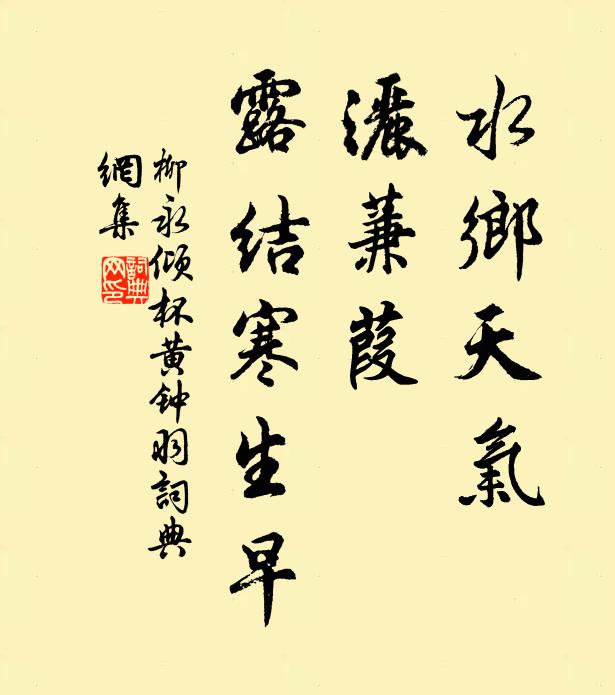 水鄉天氣
灑蒹葭
露結寒生早
柳永傾杯黄钟羽詞典
網集
詞典網印